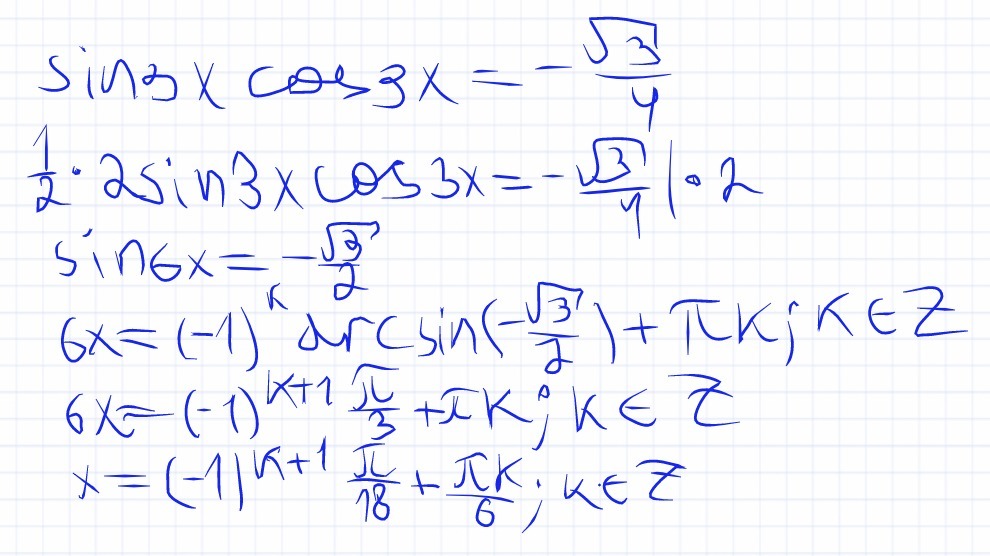 sin3x cos3x = -√3/4
1/2 · 2sin3x cos3x = -√3/4 | · 2
sin6x = -√3/2
6x = (-1)^k arcsin(-√3/2) + πk; k ∈ Z
6x = (-1)^(k+1) π/3 + πk; k ∈ Z
x = (-1)^(k+1) π/18 + πk/6; k ∈ Z